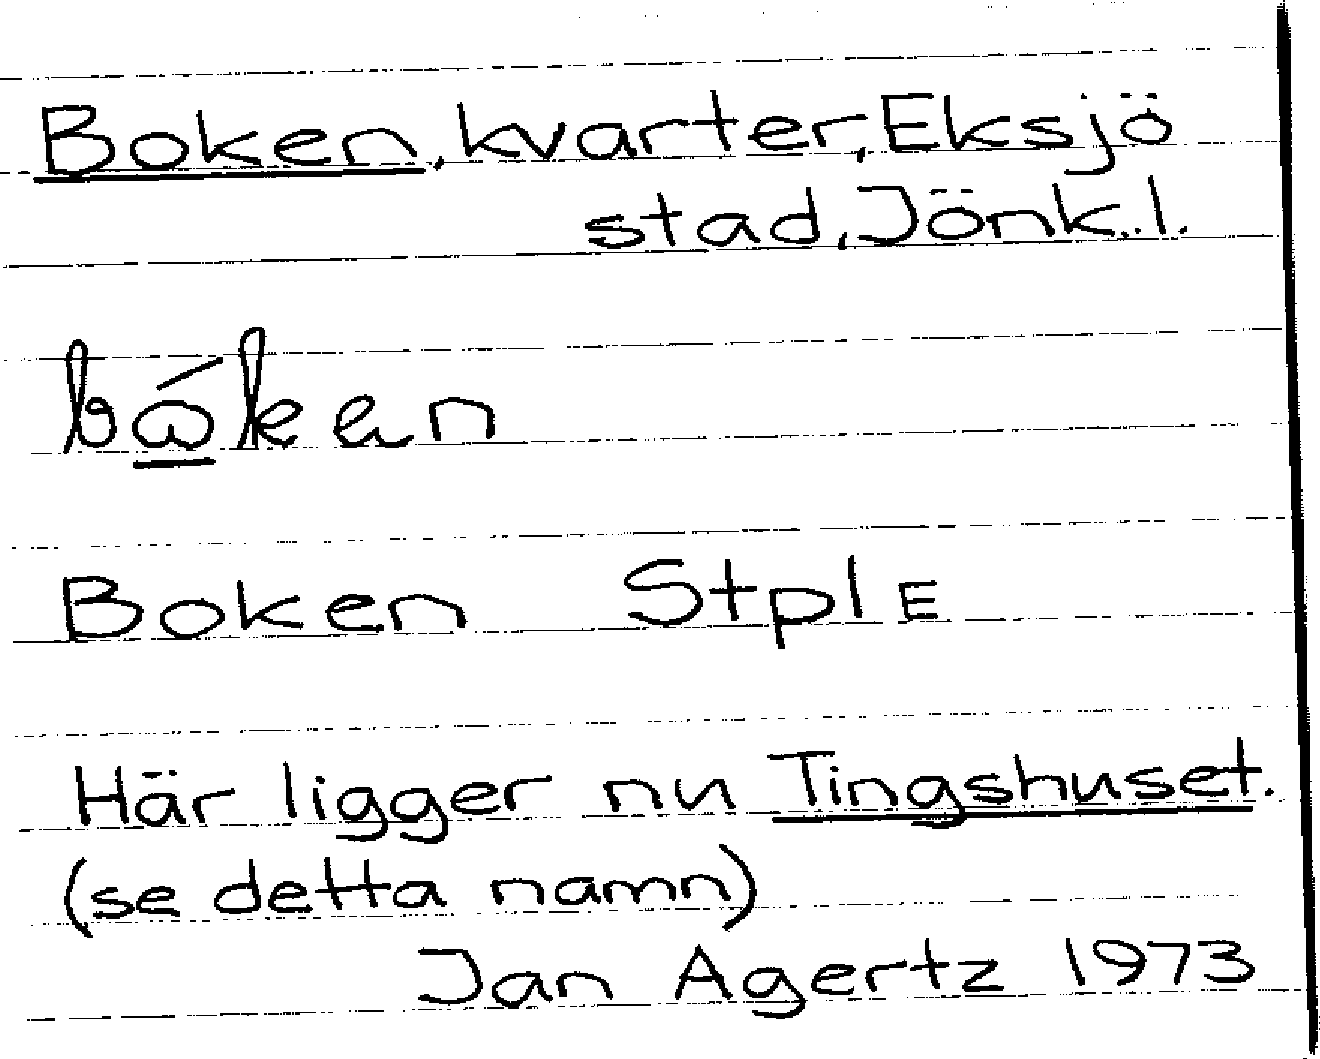 Boken, kvarter, Eksjö
stad, Jönk. l.
bǻken
Boken Stpl E
Här ligger nu Tingshuset.
(se detta namn)
Jan Agertz 1973